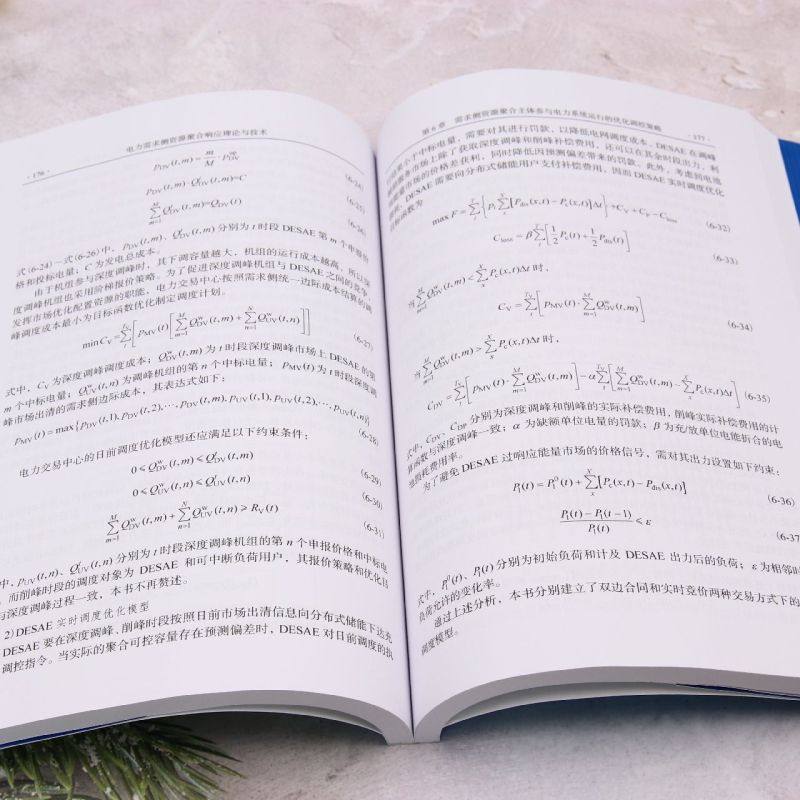 · 176 ·
电力需求侧资源聚合响应理论与技术
p_DV(t,m) = m/Δt · p^w_DV
(6-24)
p_DV(t,m) · Q^t_DV(t,m) = C
(6-25)
∑_{m=1}^{M} Q^t_DV(t,m) = Q_DV(t)
(6-26)
式(6-24)~式(6-26)中,p_DV(t,m)、Q^t_DV(t,m)分别为 t 时段 DESAE 第 m 个申报价
格和投标电量;C 为发电总成本。
由于机组参与深度调峰时,其下调容量越大,机组的运行成本越高,所以深
度调峰机组也采用阶梯报价策略。为了促进深度调峰机组与 DESAE 之间的竞争,
发挥市场优化配置资源的职能,电力交易中心按照需求侧统一边际成本结算的调
峰调度成本最小为目标函数优化制定调度计划。
min C_V = ∑_t^{T_V} { p_MV(t) [ ∑_{m=1}^{M} Q^w_DV(t,m) + ∑_{n=1}^{N} Q^w_UV(t,n) ] }
(6-27)
式中,C_V 为深度调峰调度成本;Q^w_DV(t,m) 为 t 时段深度调峰市场上 DESAE 的第
m 个中标电量;Q^w_UV(t,n) 为调峰机组的第 n 个中标电量;p_MV(t) 为 t 时段深度调
峰市场出清的需求侧边际成本,其表达式如下:
p_MV(t) = max{p_DV(t,1), p_DV(t,2), ⋯, p_DV(t,m), p_UV(t,1), p_UV(t,2), ⋯, p_UV(t,n)}
(6-28)
电力交易中心的日前调度优化模型还应满足以下约束条件:
0 ≤ Q^w_DV(t,m) ≤ Q^t_DV(t,m)
(6-29)
0 ≤ Q^w_UV(t,n) ≤ Q^t_UV(t,n)
(6-30)
∑_{m=1}^{M} Q^w_DV(t,m) + ∑_{n=1}^{N} Q^w_UV(t,n) ≥ R_V(t)
(6-31)
中,p_UV(t,n)、Q^t_UV(t,n) 分别为 t 时段深度调峰机组的第 n 个申报价格和中标电
,而削峰时段的调度对象为 DESAE 和可中断负荷用户,其报价策略和优化目
与深度调峰过程一致,本书不再赘述。
2) DESAE 实时调度优化模型
DESAE 要在深度调峰、削峰时段按照日前市场出清信息向分布式储能下达充
调控指令。当实际的聚合可控容量存在预测偏差时,DESAE 对日前调度的执
第 6 章 需求侧资源聚合主体参与电力系统运行的优化调控策略
· 177 ·
结果小于中标电量,需要对其进行罚款,以降低电网调度成本。DESAE 在调峰
辅助服务市场上除了获取深度调峰和削峰补偿费用,还可以在其余时段出力,利
能量市场的价格差获利,同时降低因预测偏差带来的罚款。此外,考虑到电池
DESAE 需要向分布式储能用户支付补偿费用,因而 DESAE 实时调度优化
目标函数为
max F = ∑_t^T { p_t ∑_x^X [P_dis(x,t) − P_c(x,t)]Δt } + C_V + C_P − C_loss
(6-32)
C_loss = β ∑_t^T [ 1/2 P_c(t) + 1/2 P_dis(t) ]
(6-33)
当 ∑_{m=1}^{M} Q^w_DV(t,m) < ∑_x^X P_c(x,t)Δt 时,
C_V = ∑_t^{T_V} [ p_MV(t) · ∑_{m=1}^{M} Q^w_DV(t,m) ]
(6-34)
当 ∑_{m=1}^{M} Q^w_DV(t,m) > ∑_x^X P_c(x,t)Δt 时,
C_DV = ∑_t^{T_V} [ p_MV(t) · ∑_{m=1}^{M} Q^w_DV(t,m) ] − α ∑_t^{T_V} [ ∑_{m=1}^{M} Q^w_DV(t,m) − ∑_x^X P_c(x,t)Δt ]
(6-35)
式中,C_DV、C_DP 分别为深度调峰和削峰的实际补偿费用,削峰实际补偿费用的计
算函数与深度调峰一致;α 为缺额单位电量的罚款;β 为充/放单位电能折合的电
池损耗费用率。
为了避免 DESAE 过响应能量市场的价格信号,需对其出力设置如下约束:
P_l(t) = P_l^0(t) + ∑_x^X [P_c(x,t) − P_dis(x,t)]
(6-36
(P_l(t) − P_l(t−1)) / P_l(t) ≤ ε
(6-37
式中,P_l^0(t)、P_l(t) 分别为初始负荷和计及 DESAE 出力后的负荷;ε 为相邻时
负荷允许的变化率。
通过上述分析,本书分别建立了双边合同和实时竞价两种交易方式下的
调度模型。